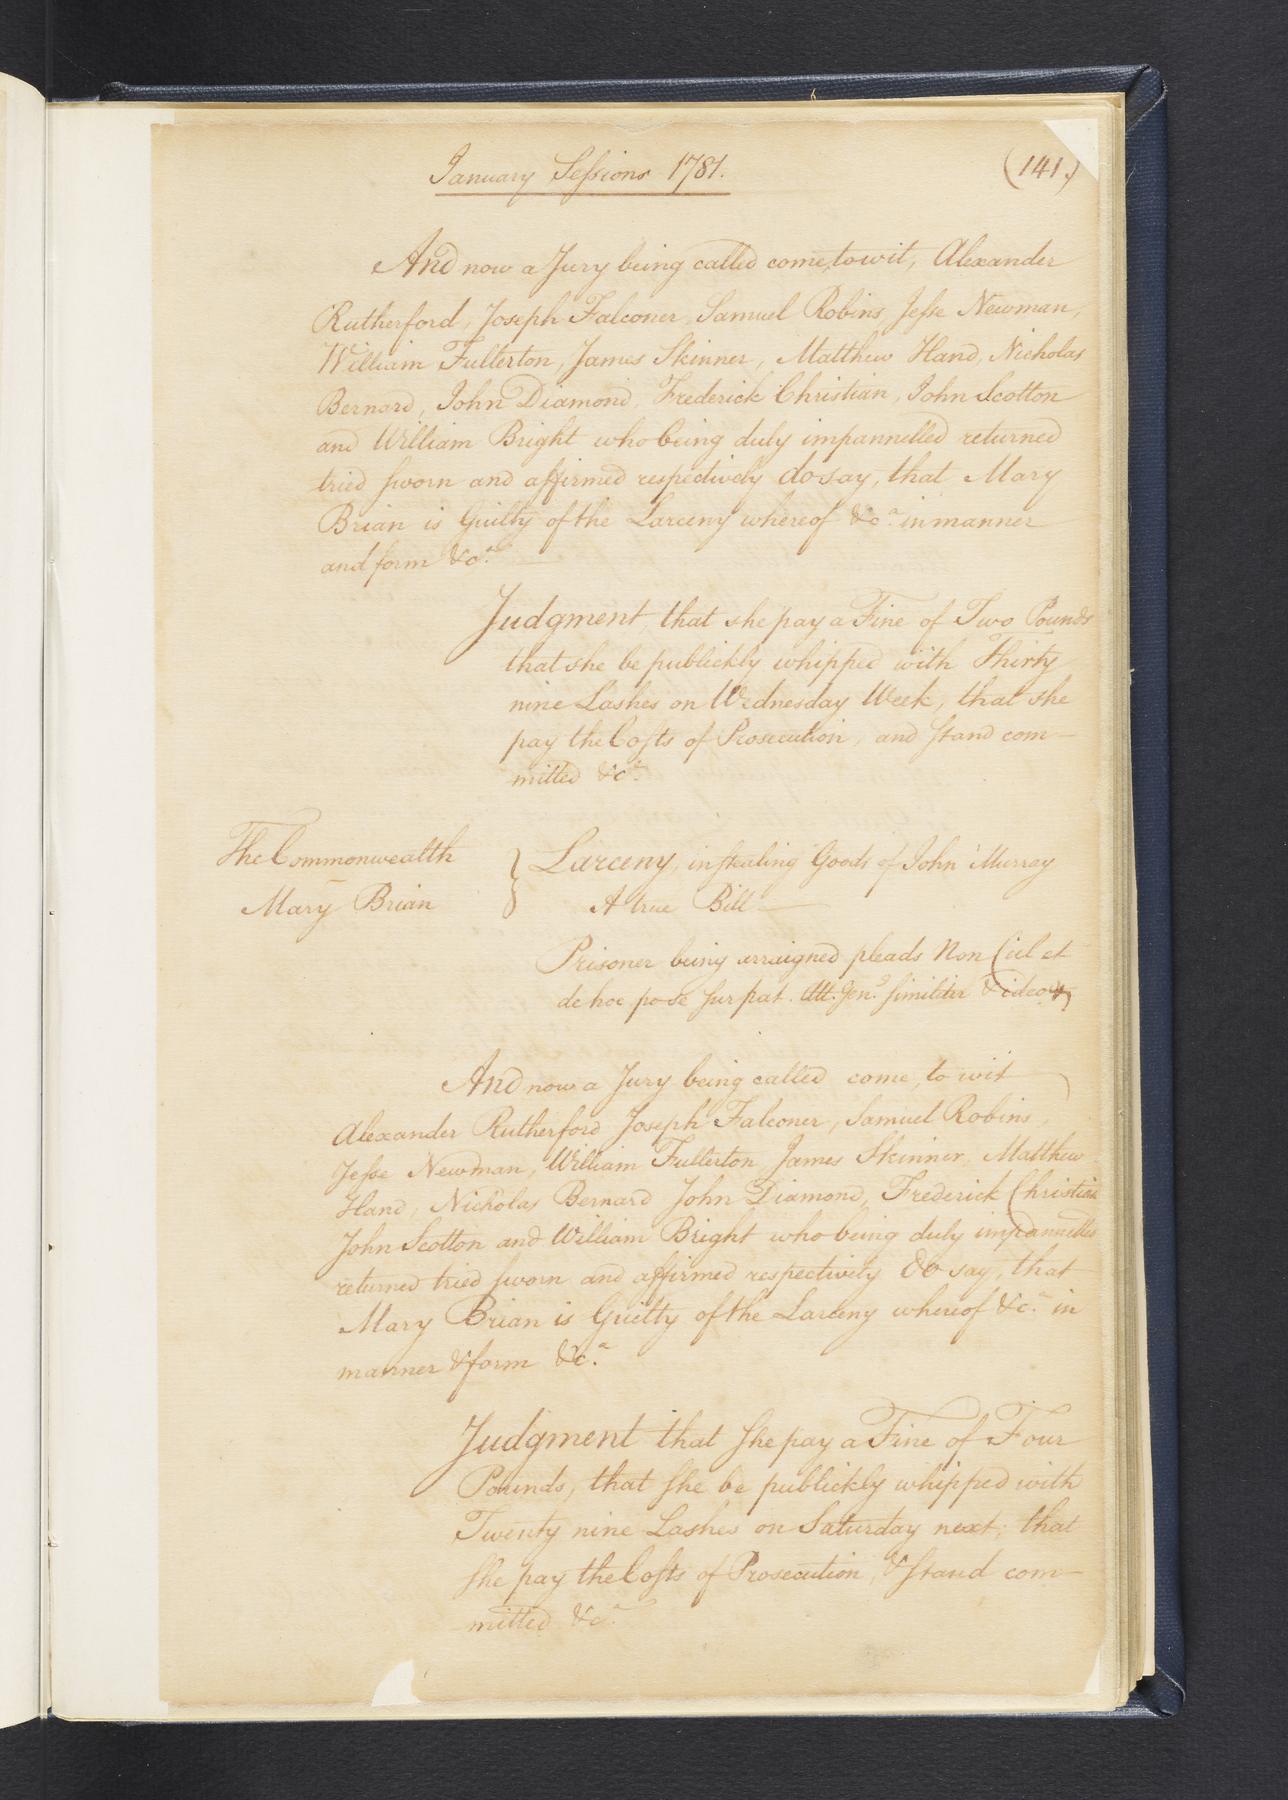 January Sessions 1781.
(141.)
And now a Jury being called come, to wit, Alexander
Rutherford, Joseph Falconer, Samuel Robins, Jesse Newman,
William Fullerton, James Skinner, Matthew Hand, Nicholas
Bernard, John Diamond, Frederick Christian, John Scotton
and William Bright who being duly impannelled returned
tried sworn and affirmed respectively do say, that Mary
Brian is Guilty of the Larceny whereof &c.a in manner
and form &c.a
Judgment, that she pay a Fine of Two Pounds
that she be publickly whipped with Thirty
nine Lashes on Wednesday Week, that she
pay the Costs of Prosecution, and stand com-
mitted &c.a
The Commonwealth } Larceny, in stealing Goods of John Murray
Mary Brian A true Bill
Prisoner being arraigned pleads Non Cul et
de hoc po se sur pat. Att. Gen.l similiter & ideo
And now a Jury being called come, to wit
Alexander Rutherford Joseph Falconer, Samuel Robins,
Jesse Newman, William Fullerton, James Skinner, Matthew
Hand, Nicholas Bernard John Diamond, Frederick Christian
John Scotton and William Bright who being duly impannelled
returned tried sworn and affirmed respectively do say, that
Mary Brian is Guilty of the Larceny whereof &c.a in
manner & form &c.a
Judgment that she pay a Fine of Four
Pounds, that she be publickly whipped with
Twenty nine Lashes on Saturday next; that
she pay the Costs of Prosecution, & stand com-
mitted &c.a